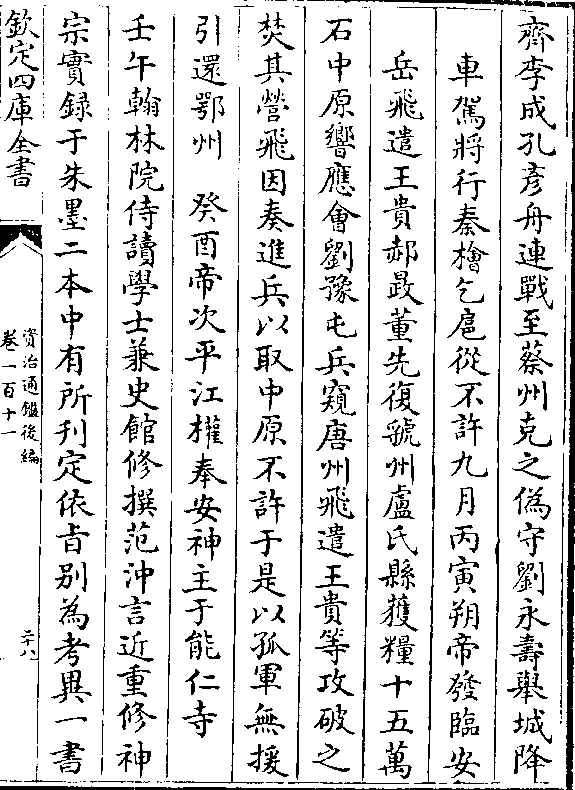 齊李成孔彦舟連戰至蔡州克之偽守劉永壽舉城降
車駕將行秦檜乞扈從不許九月丙寅朔帝發臨安
岳飛遣王貴郝晸董先復虢州盧氏縣獲糧十五萬
石中原響應會劉豫屯兵窺唐州飛遣王貴等攻破之
焚其營飛因奏進兵以取中原不許于是以孤軍無援
引還鄂州　癸酉帝次平江權奉安神主于能仁寺
壬午翰林院侍讀學士兼史館修撰范沖言近重修神
宗實録于朱墨二本中有所刊定依㫖别為考異一書
欽定四庫全書
資治通鑑後編
卷一百十一
二十八